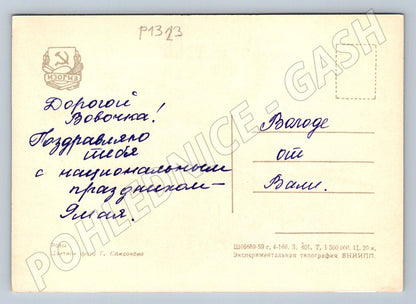 P1323
ИЗОГИЗ
Дорогой
Вовочка!
Поздравляю
тебя
с национальным
праздником –
1 мая.
Володе
от
Вали.
POHLEDNICE - GASH
Цветное фото Г. Самсонова
Ш06680-59 г. 4-166. З. 401. Т. 1 500 000. Ц. 20 к.
Экспериментальная типография ВНИИПП.